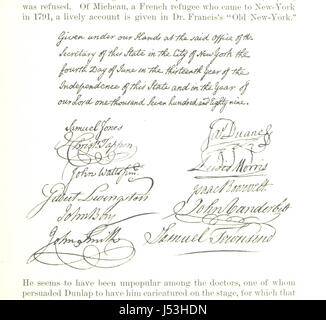 was refused. Of Michean, a French refugee who came to New-York
in 1791, a lively account is given in Dr. Francis's "Old New-York."
Given under our Hands at the said office of the
Secretary of this State in the City of New York the
fourth Day of June in the thirteenth Year of the
Independence of this State and in the Year of
our Lord one thousand seven hundred and Eighty nine.
Samuel Jones
Christr Tappen
John Watts Junr
Gilbert Livingston
John Bay
John Smith
Jas Duane
Lewis Morris
Isaac Roosevelt
John Vanderbilt
Samuel Townsend
He seems to have been unpopular among the doctors, one of whom
persuaded Dunlap to have him caricatured on the stage, for which that
alamy
J53HDN